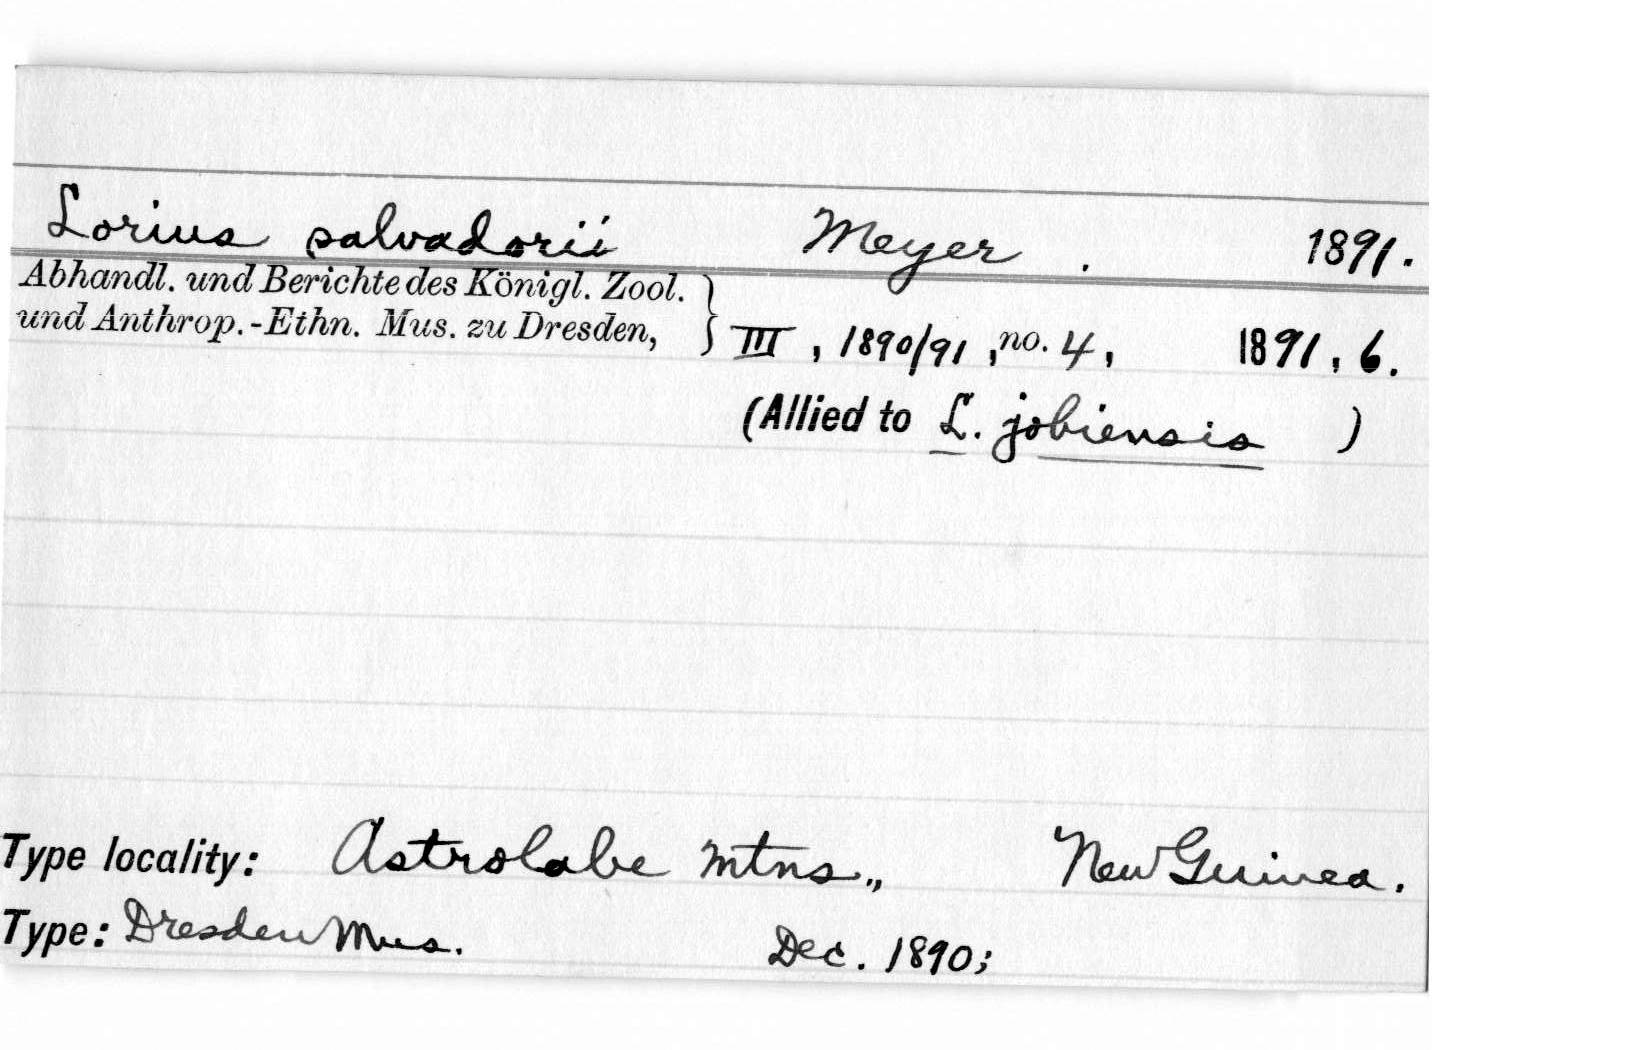 Lorius salvadorii Meyer . 1891.
Abhandl. und Berichte des Königl. Zool.
und Anthrop.-Ethn. Mus. zu Dresden, } III, 1890/91, no. 4, 1891, 6.
(Allied to L. jobiensis )
Type locality: Astrolabe Mtns., New Guinea.
Type: Dresden Mus. Dec. 1890;